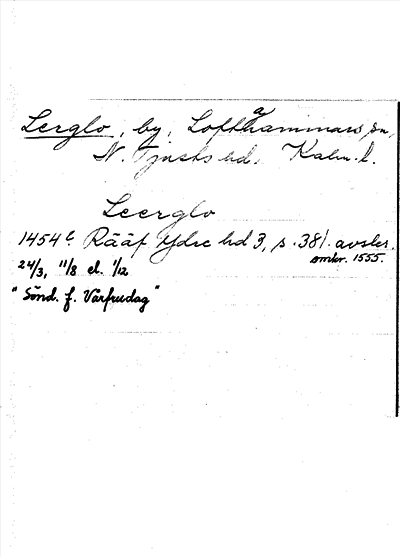 Lerglo, by, Lofthammars sn,
N. Tjusts hd, Kalm. l.
Leerglo
1454 C Rääf Ydre hd 3, s. 381. avskr.
omkr. 1555.
24/3, 11/8 el. 1/12
"Sönd. f. Vårfrudag"